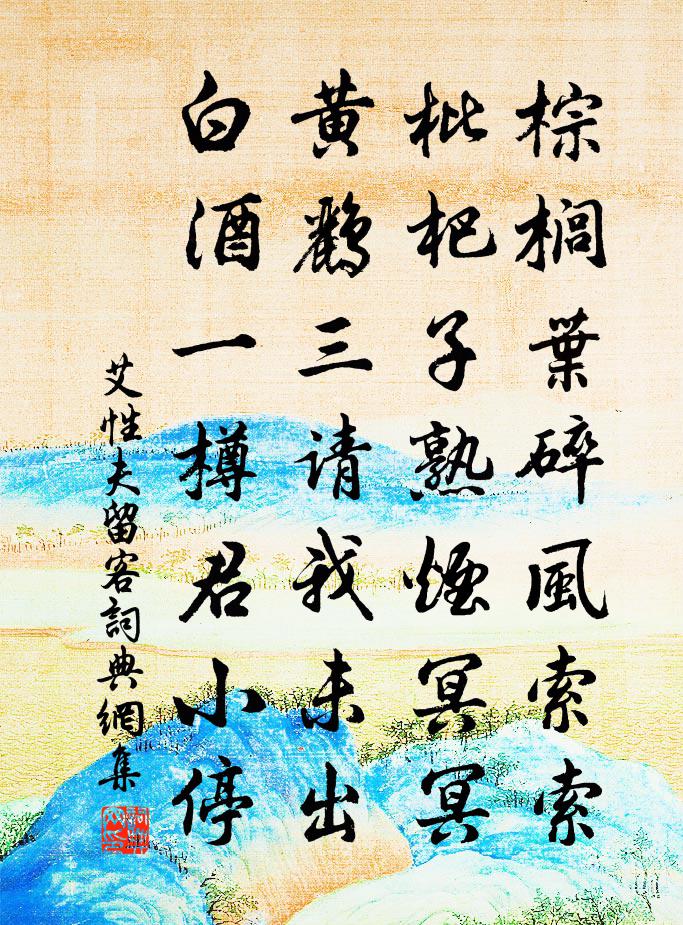 棕榈葉碎風索索
枇杷子熟煙冥冥
黄鸝三请我未出
白酒一樽君小停
艾性夫留客詞典網集